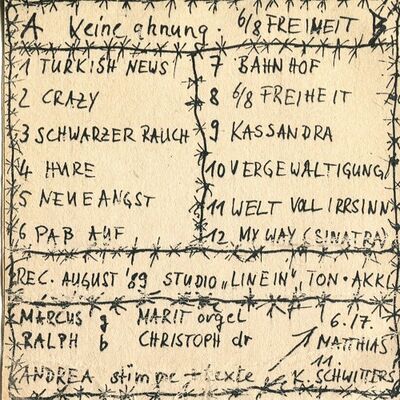 A keine ahnung. 6/8 FREIHEIT B
1 TURKISH NEWS
2 CRAZY
3 SCHWARZER RAUCH
4 HURE
5 NEUE ANGST
6 PAß AUF
7 BAHNHOF
8 6/8 FREIHEIT
9 KASSANDRA
10 VERGEWALTIGUNG
11 WELT VOLL IRRSINN
12 MY WAY (SINATRA)
REC. AUGUST '89 STUDIO „LINE IN", TON·AKKI
MARCUS g MARIT orgel 6./7.
RALPH b CHRISTOPH dr MATTHIAS
11.
ANDREA stimme + texte K. SCHWITTERS